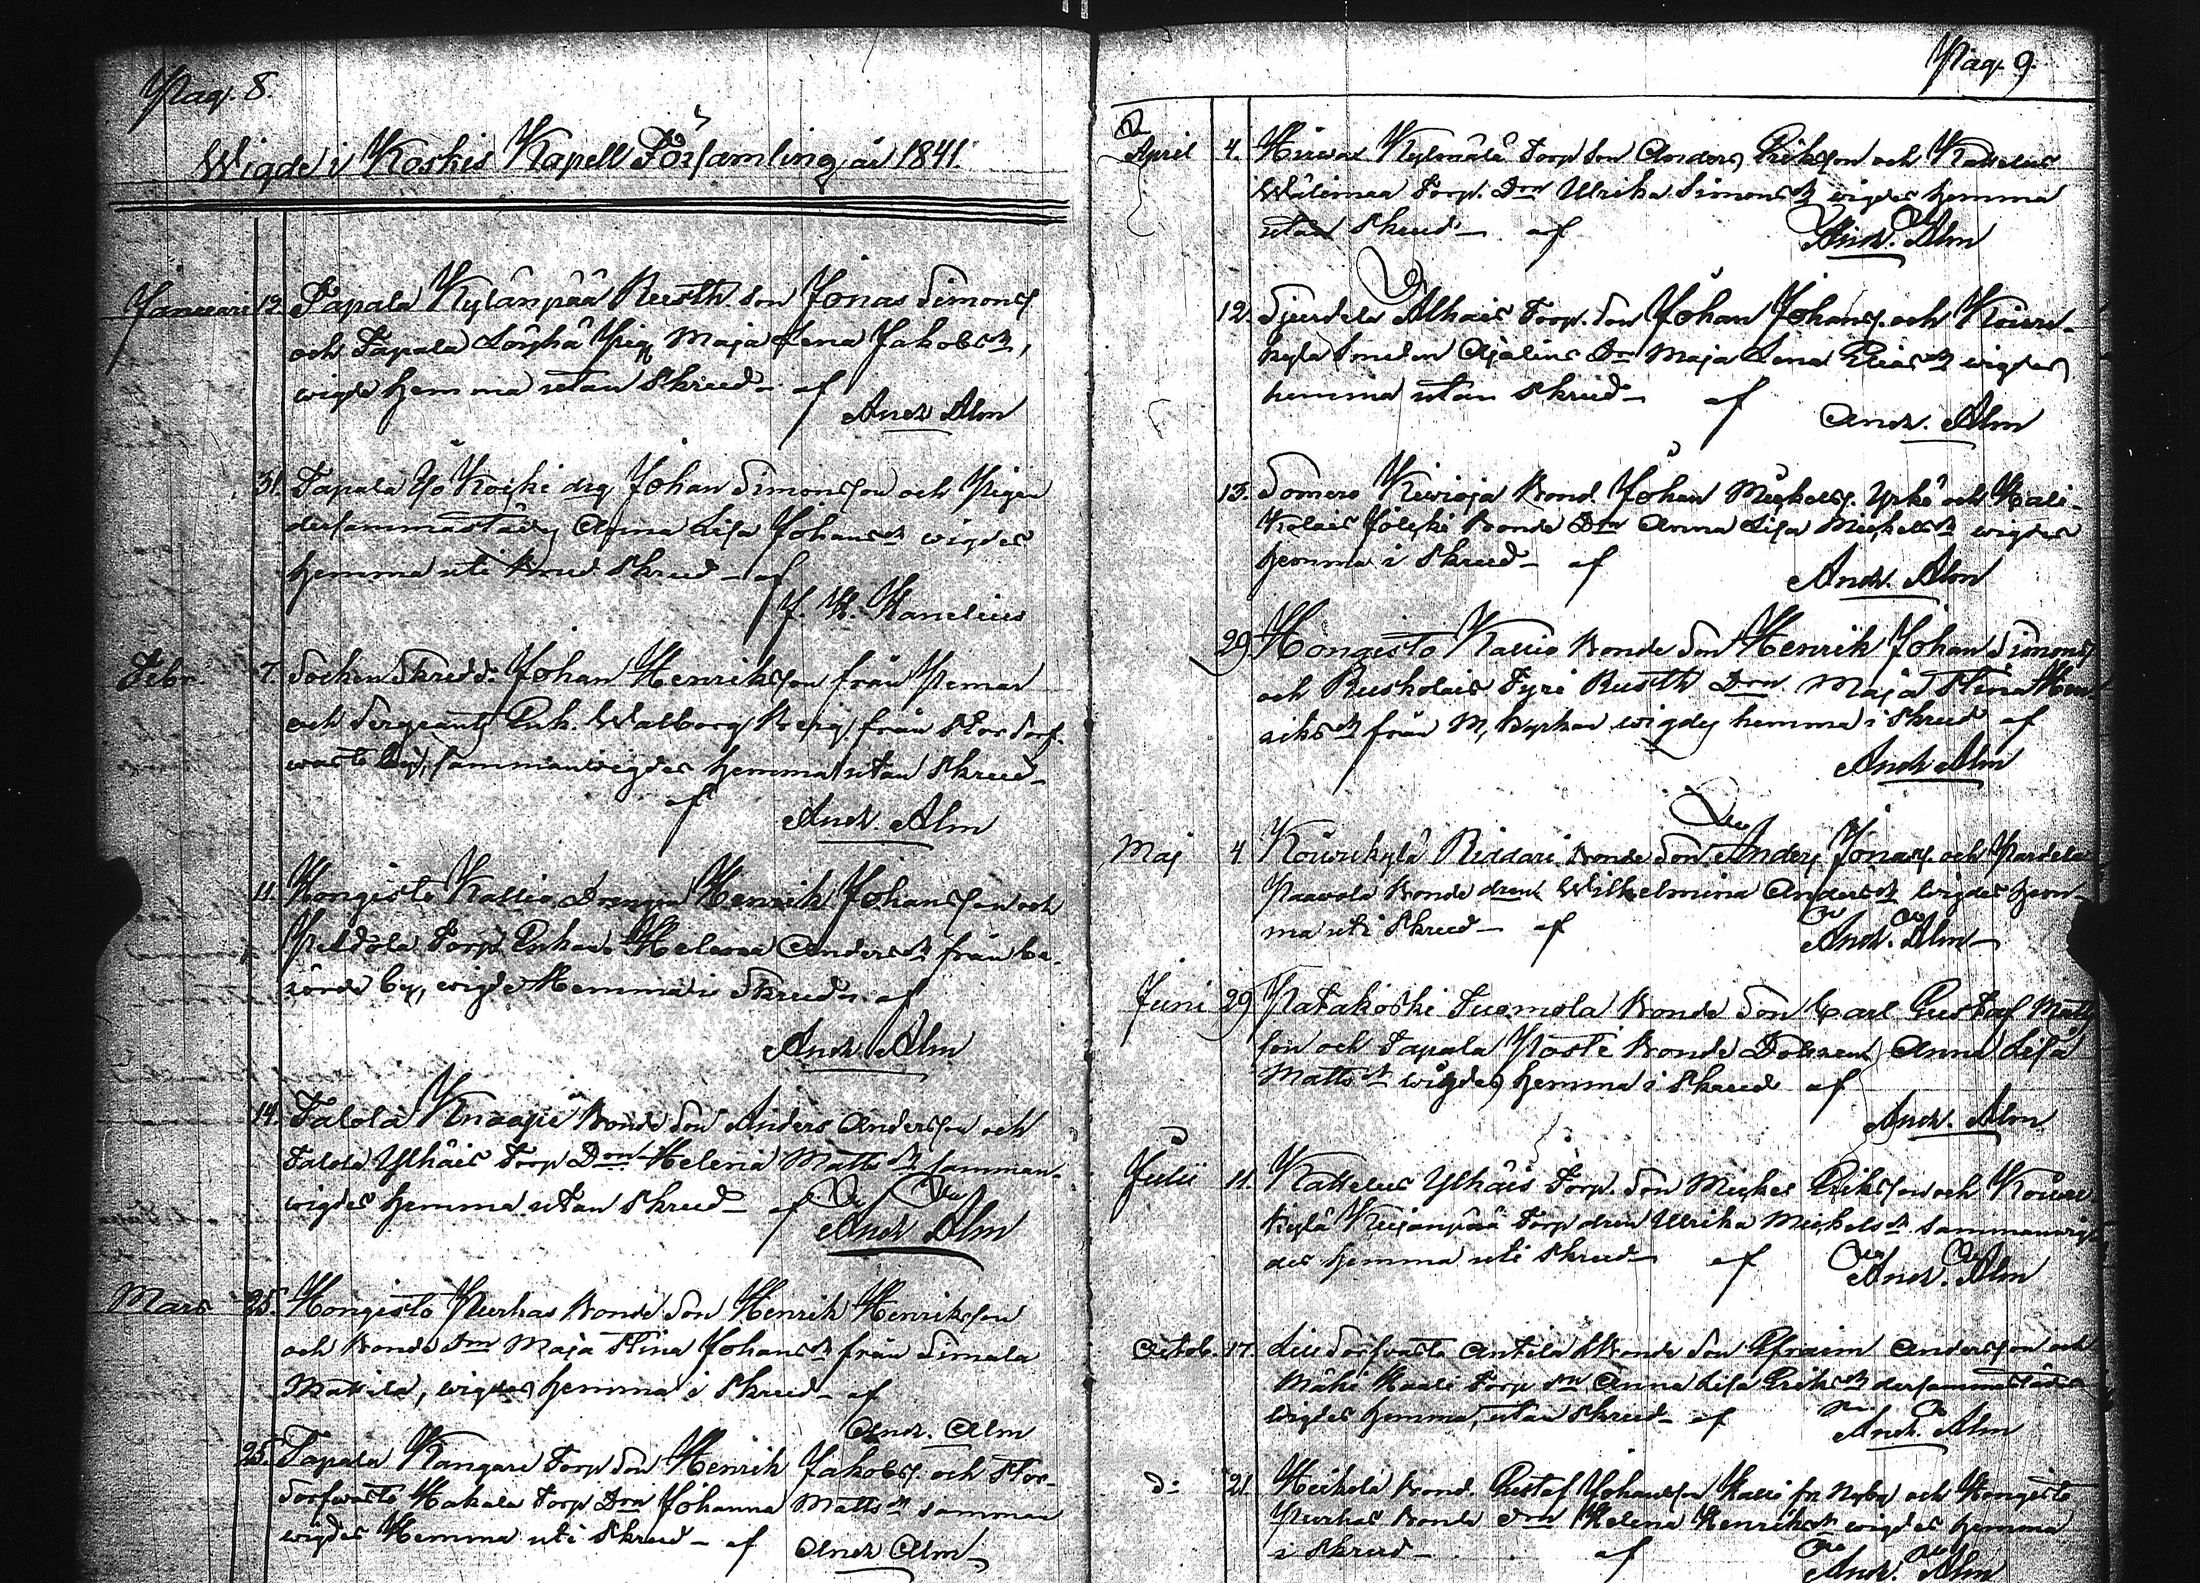 Pag. 8.
Wigde i Koskis Kapell Församling år 1841.
Januari 19. Tapala Kylänpää Rusth. Son Jonas Simonss.
och Tapala Löyhä Pig. Maja Lena Jakobsdr,
wigde hemma utan Skrud – af
Andr. Alm
31. Tapala Yö Koski drg Johan Simonsson och Pigan
dersammastädes Anna Lisa Johansdr wigdes
hemma uti Brud Skrud – af
F. W. Wanelius
Febr. 7. Socken Skredd. Johan Henriksson från Pemar
och Sergeants Enk. Walborg Berg från Stor Sorf-
wasto by, sammanwigdes hemma utan Skrud –
af Andr. Alm
11. Hongisto Kallio Drengen Henrik Johansson och
Peldola Torp. Enkan Helena Andersdr från be-
rörde by, wigde Hemma i Skrud. af
Andr. Alm
14. Talola Knaapi Bonde Son Anders Andersson och
Talola Ylhäis Torp Dtrn Helena Mattsdr samman-
wigdes hemma utan Skrud – af
Andr Alm
Mars 25. Hongisto Purhas Bonde Son Henrik Henriksson
och Bonde Dtrn Maja Stina Johansdr från Simala
Mattila, wigdes hemma i Skrud – af
Andr. Alm
25. Tapala Kangare Torp Son Henrik Jakobss. och Stor-
Sorfwasto Hakala Torp Dtrn Johanna Mattsdr samman
wigdes Hemma uti Skrud – af Andr Alm –
Pag. 9.
April 4. Hirwas Kylmälä Torp Son Anders Eriksson och Kattelus
Wälimaa Torp. Dtrn Ulrika Simonsdr wigdes hemma
utan Skrud – af Andr. Alm
12. Sjurdela Alhais Torp. Son Johan Johanss. och Koiwu-
kyla Smeden Ajalins Dr Maja Lena Eliasdr wigdes
hemma utan Skrud – af
Andr. Alm
13. Somero Kiwioja Bond. Johan Michelss. Yrkö och Hali-
kolais Jölski Bonde Dtrn Anna Lisa Michelsdr wigdes
hemma i Skrud – af
Andr. Alm
29. Hongisto Kallio Bonde Son Henrik Johan Simonss
och Rusholais Tyri Rusth Dtrn. Maja Stina Hen-
riksdr från M, Kyrkan wigdes hemma i Skrud af
Andr Alm
Maj 4 Koiwukylä Riddari Bonde Son Anders Jonass. och Pardela
Paawola Bonde dtren Wilhelmina Andersdr wigdes hem-
ma uti Skrud – af Andr. Alm –
Juni 29 Patakoski Tuomola Bonde Son Carl Gustaf Matts
son och Tapala Posti Bonde Dotren Anna Lisa
Mattsdr wigdes hemma i Skrud af
Andr. Alm
Julii 11. Kattelus Ylhäis Torp. Son Michel Eriksson och Koiwu
kylä Kujanpää Torp dtrn Ulrika Michelsdr sammanwig
des hemma uti Skrud – af Andr. Alm
Octob. 17. Lill Sorfwasto Antila Bonde Son Efraim Andersson och
Mäki Haali Torp dtrn Anna Lisa Eriksdr dersammastädes
wigdes hemma, utan Skrud – af
Andr. Alm
d: 21. Heikola Bond. Gustaf Johansson Kalli fr. Nyby och Hongisto
Purhas Bonde dtrn Helena Henriksdr wigdes hemma
i Skrud – af Andr. Alm